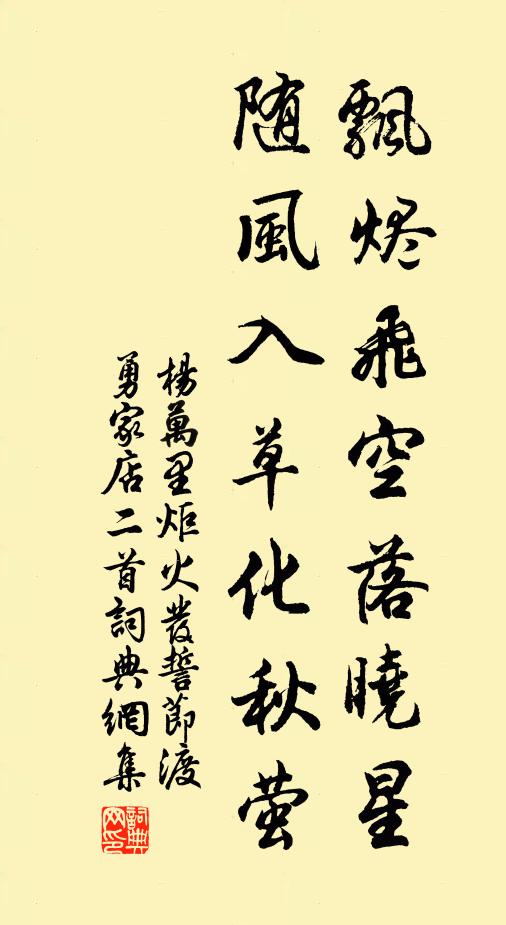 飄烬飛空落曉星
随風入草化秋萤
楊萬里炬火發誓節渡
勇家店二首詞典網集
詞典
网印